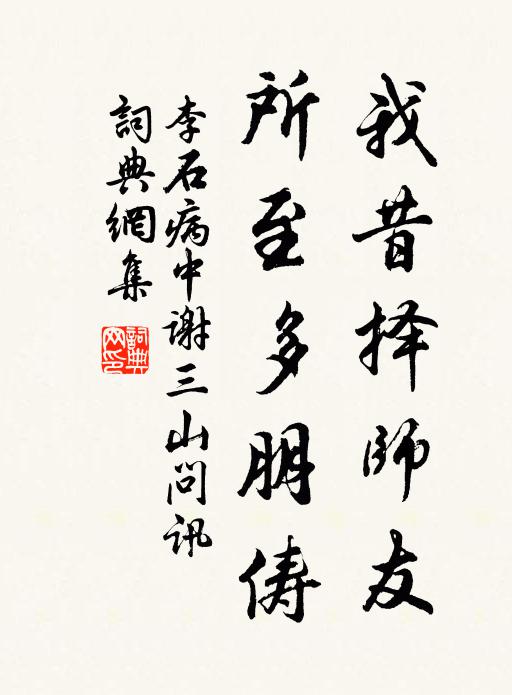 我昔择師友
所至多朋俦
李石病中謝三山問訊
詞典網集
詞典網印